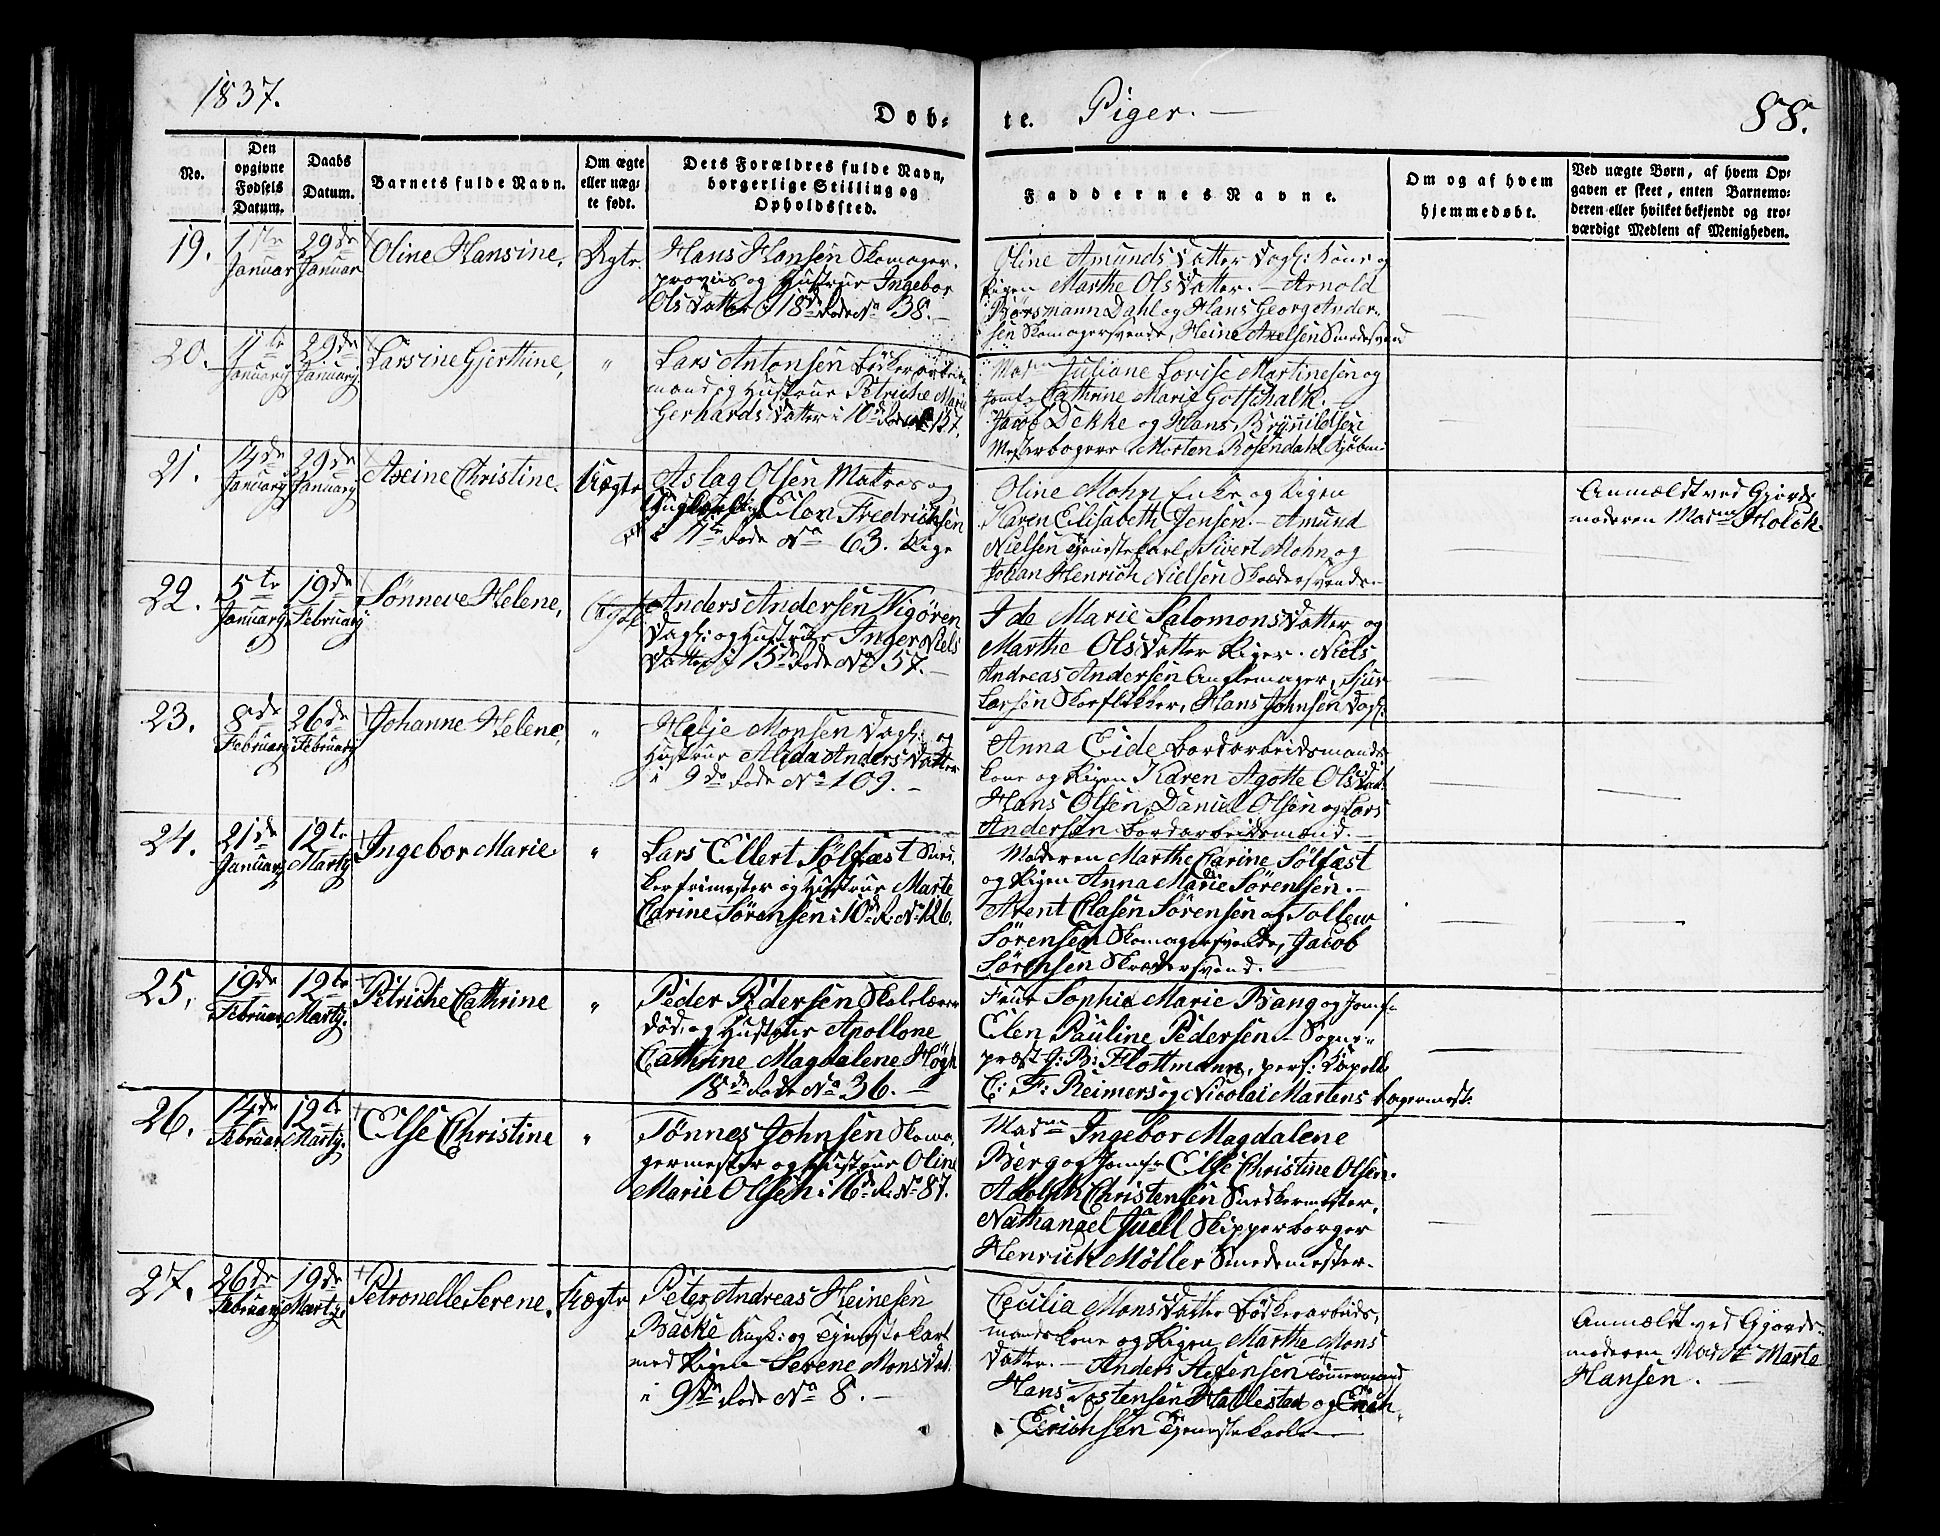 1837.
Døb-
te. Piger. —
88.
No.
Den
opgivne
Fødsels
Datum.
Daabs
Datum.
Barnets fulde Navn.
Om ægte
eller uæg-
te født.
Dets Forældres fulde Navn,
borgerlige Stilling og
Opholdssted.
Faddernes Navne.
Om og af hvem
hjemmedøbt.
Ved uægte Børn, af hvem Op-
gaven er skeet, enten Barnemo-
deren eller hvilket bekjendt og tro-
værdigt Medlem af Menigheden.
19.
1ste
Januar
29de
Januar
Oline Hansine,
Ægte.
Hans Hansen Skomager-
og Hustrue Ingebor
Olsdatter i 18de Rode No 38. —
Oline Amundsdatter Dagl: Kone og
Pigen Marthe Olsdatter. — Arnold
Børsmann Dahl og Hans Georg Ander-
sen Skomagersvende, Heine Axelsen Smedesvend
20.
29de
Januarij
Januarij
Larsine Gjerthine,
"
Lars Antonsen Bødkerarbeids
mand og Hustrue Petriche Marie
Gerhardsdatter i 10de Rode No 127.
Madme Juliane Lovise Martinesen og
Jomfr Cathrine Marie Gotschalk. —
Jacob Dekke og Hans Brynnildsen
Morten Rosendahl Kjøbm:
21.
14de
Januarij
29de
Januarij
Axeine Christine.
Uægte
Aslag Olsen Matros og
Elen Fredrichsen
i 7te Rode No 63. Pige
Oline Mohn Enke og Pigen
Karen Elisabeth Jensen. — Amund
Nielsen Tjenestekarl, Sivert Mohn og
Johan Henrich Nielsen Skrædersvende. —
Anmældt ved Gjord-
moderen Madme Holck.
22.
5te
Januarij.
19de
Februarij
Sønneve Helene,
Ægte
Anders Andersen Vigøren
Dagl: og Hustrue Inger Niels
datter i 15de Rode No 57. —
Ide Marie Salomonsdatter og
Marthe Olsdatter Piger. Niels
Andreas Andersen Anglemager, Sjur
Larsen Skoflikker, Hans Johnsen Dagl:
23.
8de
Februarij
26de
Februarij
Johanne Helene,
"
Helje Monsen Dagl: og
Hustrue Alida Andersdatter
i 9de Rode No 109. —
Anna Eide Bordarbeidsmands
kone og Pigen Karen Agothe Olsdat:
Hans Olsen, Daniel Olsen og Lars
Andersen Bordarbeidsmænd. —
24.
21de
Januarij
12te
Martij
Ingebor Marie
"
Lars Ellert Sølfæst Sned-
kerfrimester og Hustrue Marte
Carine Sørensen i 10de R. No 126.
Moderen Marthe Carine Sølfæst
og Pigen Anna Marie Sørensen. —
Arent Clasen Sørensen og Tollew
Sørensen Skomagersvende, Jacob
Sørensen Skrædersvend. —
25.
19de
Februar.
12te
Martij.
Petriche Cathrine
"
Peder Pedersen Skolelærer
død, og Hustrue Apollone
Cathrine Magdalene Høgh
18de Rode No 36. —
Frue Sophie Marie Bang og Jomfr
Elen Pauline Pedersen — Sogne-
præst J: B: Flottmann, pers: Kapell:
C: F: Reimers og Nicolai Martens Bagermest:
26.
14de
Februar.
12te
Martij.
Else Christine
"
Tønnes Johnsen Skoma-
germester og Hustrue Oline
Marie Olsen i 16de R. No 87.
Madme Ingebor Magdalene
Berg og Jomfr Else Christine Olsen.
Adolph Christensen Snedkermester,
Nathanael Juell Skipperborger
Henrich Møller Smedemester. —
27.
26de
Februarij
19de
Martij.
Petronelle Serene.
Uægte
Peter Andreas Heinesen
Backe Ungk: og Tjenestekarl
med Pigen Serene Monsdat:
i 9de Rode No 8. —
Cecilia Monsdatter Bødkerarbeids-
mands kone og Pigen Marthe Mons
datter. — Anders Tømmermand
Hans Tostensen Hallested og Erich
Erichsen Tjenestekarle —
Anmældt ved Gjord-
moderen Madme Marte
Hansen. —